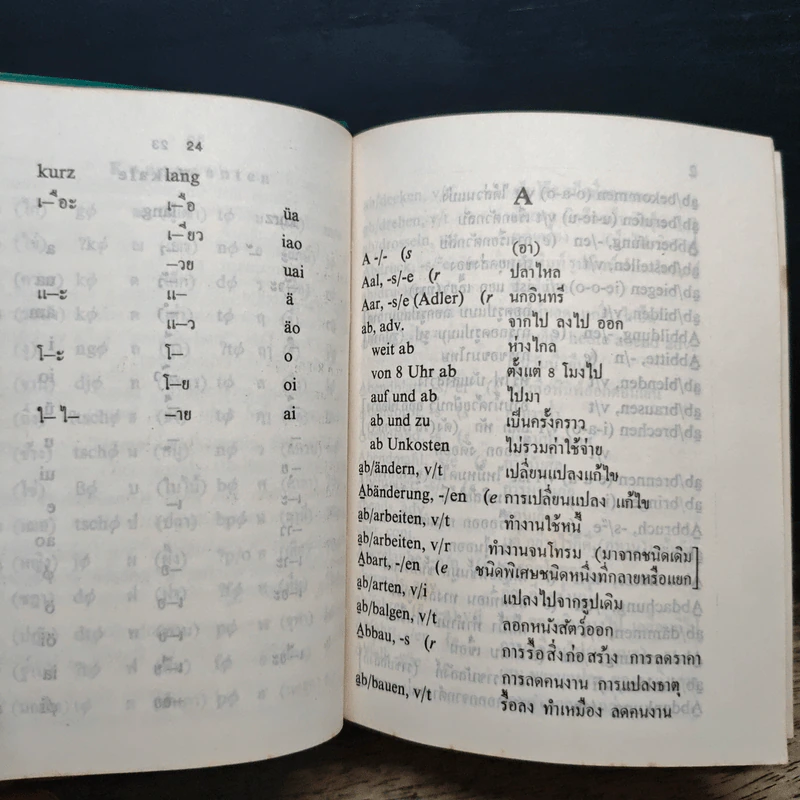 24
kurz lang
เ–ือะ เ–ือ üa
เ–ียว iao
–วย uai
แ–ะ แ– ä
แ–ว äo
โ–ะ โ– o
โ–ย oi
ใ– ไ– –าย ai
A
A -/- (s (อา)
Aal, -s/-e (r ปลาไหล
Aar, -s/e (Adler) (r นกอินทรี
ab, adv. จากไป ลงไป ออก
weit ab ห่างไกล
von 8 Uhr ab ตั้งแต่ 8 โมงไป
auf und ab ไปมา
ab und zu เป็นครั้งคราว
ab Unkosten ไม่รวมค่าใช้จ่าย
ab/ändern, v/t เปลี่ยนแปลงแก้ไข
Abänderung, -/en (e การเปลี่ยนแปลง แก้ไข
ab/arbeiten, v/t ทำงานใช้หนี้
ab/arbeiten, v/r ทำงานจนโทรม (มาจากชนิดเดิม
Abart, -/en (e ชนิดพิเศษชนิดหนึ่งที่กลายหรือแยก]
ab/arten, v/i แปลงไปจากรูปเดิม
ab/balgen, v/t ลอกหนังสัตว์ออก
Abbau, -s (r การรื้อสิ่งก่อสร้าง การลดราคา
การลดคนงาน การแปลงธาตุ
ab/bauen, v/t รื้อลง ทำเหมือง ลดคนงาน